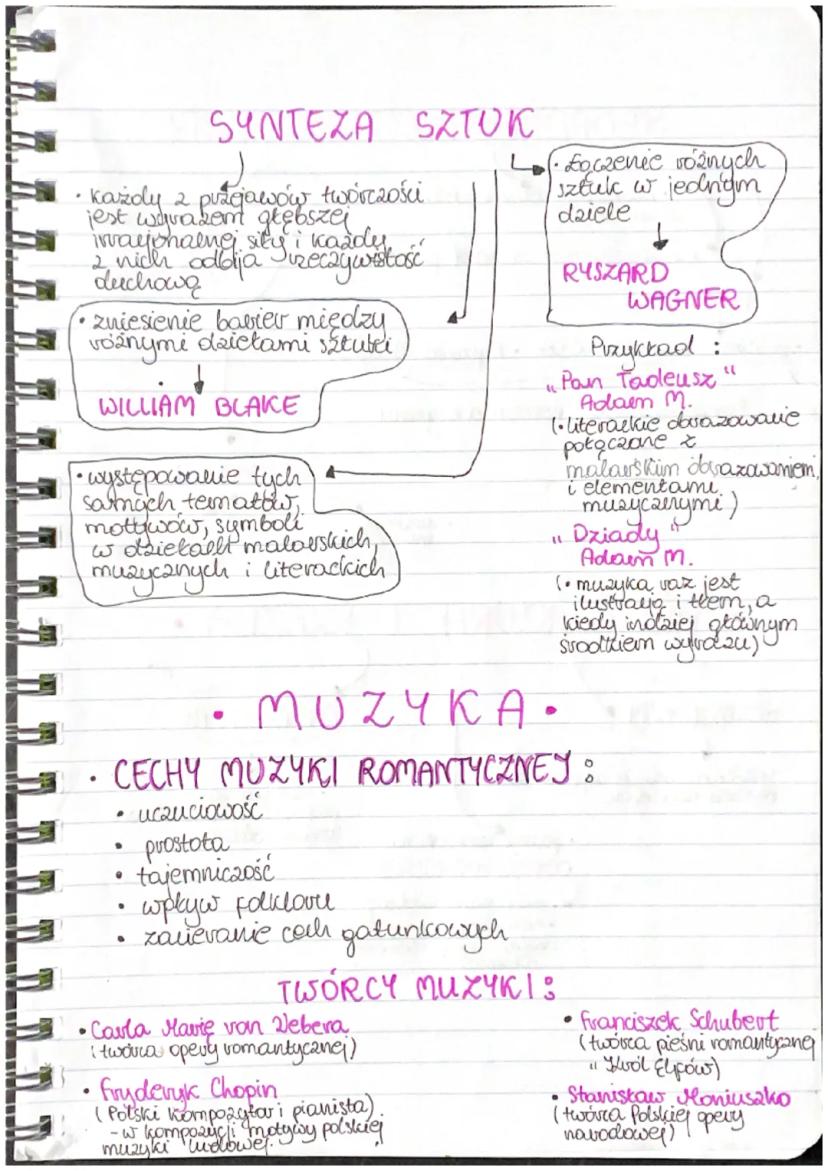 SYNTEZA SZTUK
• każdy z przejawów twórczości
jest wyrazem głębszej
irracjonalnej siły i każdy
z nich odbija rzeczywistość
duchową
• zniesienie barier między
różnymi dziełami sztuki
WILLIAM BLAKE
• występowanie tych
samych tematów,
motywów, symboli
w dziełach malarskich,
muzycznych i literackich
• Łączenie różnych
sztuk w jednym
dziele
RYSZARD
WAGNER
Przykład :
"Pan Tadeusz"
Adam M.
(• literackie obrazowanie
połączone z
malarskim obrazowaniem,
i elementami
muzycznymi)
"Dziady"
Adam M.
(• muzyka raz jest
ilustracją i tłem, a
kiedy indziej głównym
środkiem wyrazu)
• MUZYKA •
• CECHY MUZYKI ROMANTYCZNEJ :
• uczuciowość
• prostota
• tajemniczość
• wpływ folkloru
• zacieranie cech gatunkowych
TWÓRCY MUZYKI :
• Carla Marię von Webera
(twórca opery romantycznej)
• Fryderyk Chopin
(Polski kompozytor i pianista)
- w kompozycji motywy polskiej
muzyki ludowej.
• Franciszek Schubert
(twórca pieśni romantycznej
"Król Elfów)
• Stanisław Moniuszko
(twórca Polskiej opery
narodowej)